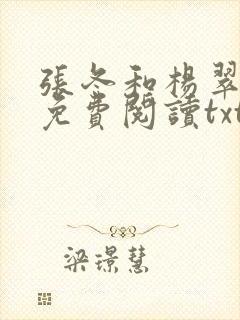 張冬和楊翠
免費閱讀txt
梁璟慧